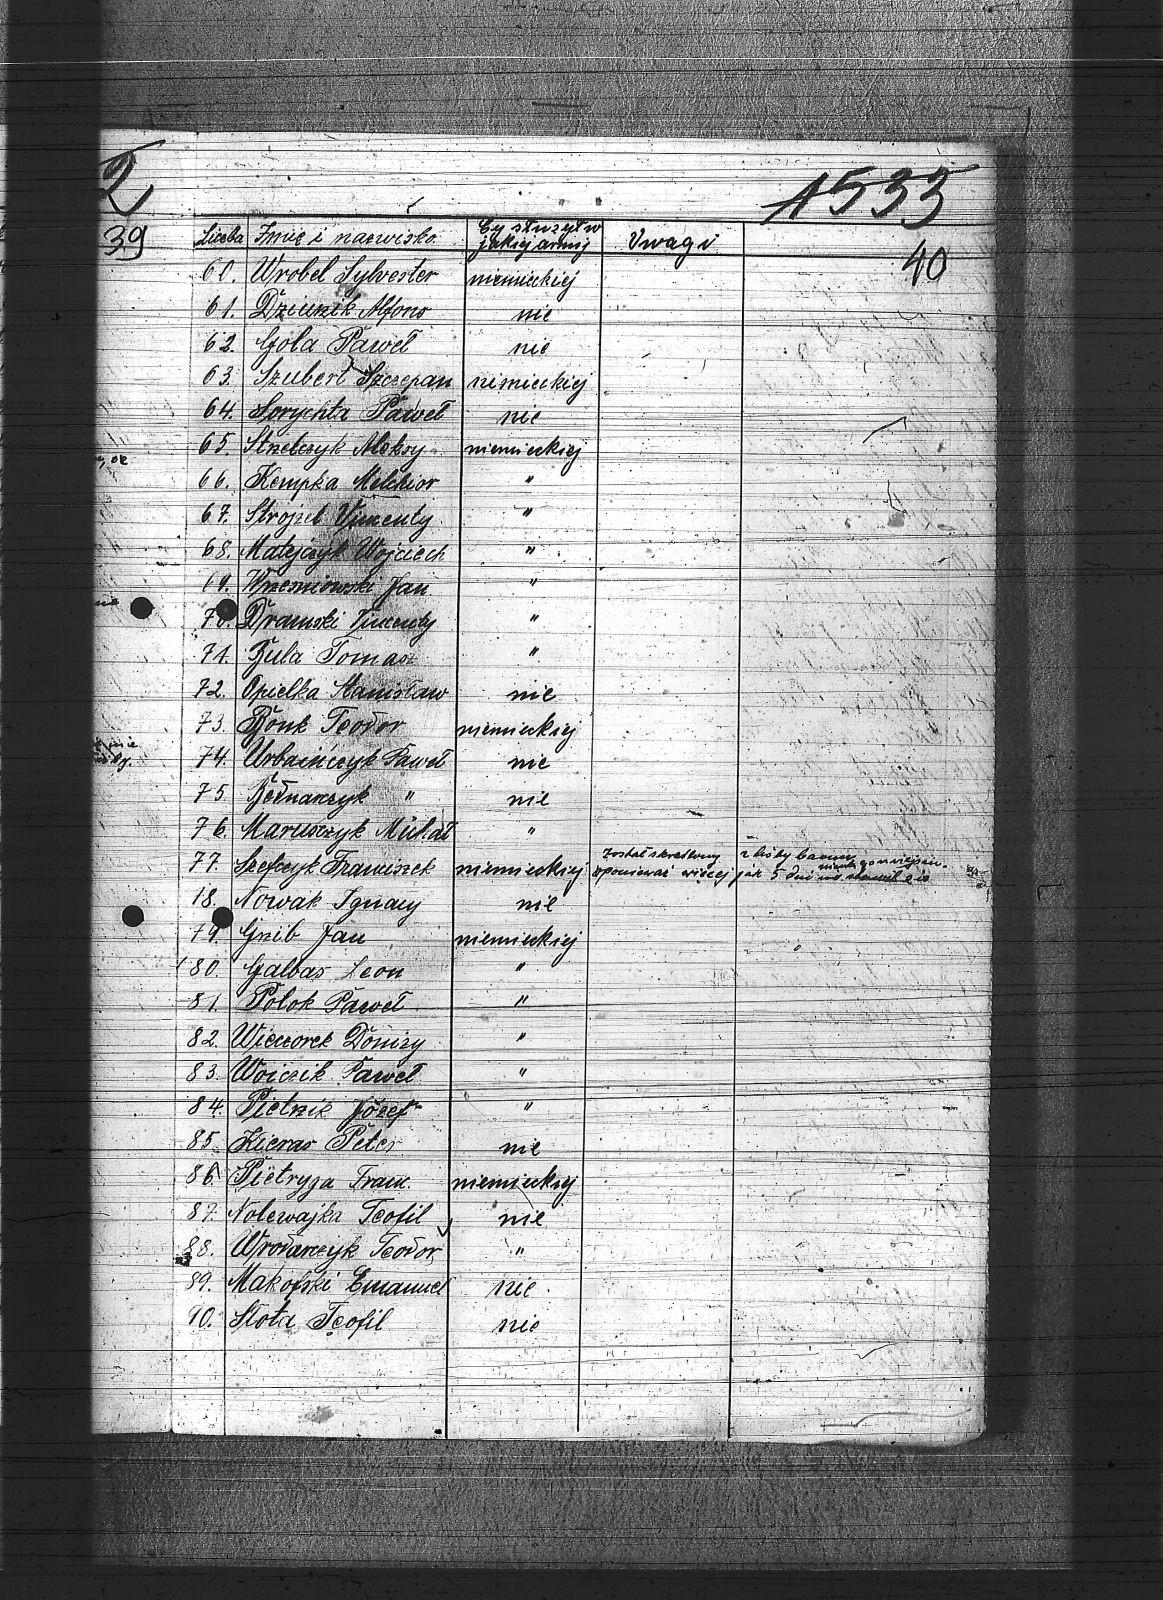 2
A 533
39
40
Liczba Imię i nazwisko Cy służył w jakiej armij Uwagi
60. Wrobel Sylvester niemieckiej
61. Dziunik Alfons nie
62. Gola Paweł nie
63. Szubert Szczepan nimieckiej
64. Sorychta Paweł nie
65. Strzelczyk Aleksy niemieckiej
66. Kempka Melchior "
67. Strojzel Vincenty "
68. Matejczyk Wojciech "
69. Wrzesniowski Jan "
70. Dramski Vincenty "
71. Bula Tomasz "
72. Opielka Stanisław nie
73. Bonk Teodor niemieckiej
74. Urbainczyk Paweł nie
75. Bednarzyk " nie
76. Maruszyk Michał "
77. Szefczyk Franciszek niemieckiej został skreślony z listy więcej jak 5 dni
78. Nowak Ignacy nie
79. Gnib Jan niemieckiej
80. Galbas Leon "
81. Polok Paweł "
82. Wieczorek Dönizy "
83. Woiczik Paweł "
84. Pietrzik Józef "
85. Kieras Peter nie
86. Pietryga Franc. niemieckiej
87. Nolewajka Teofil nie
88. Wrodarczyk Teodor "
89. Makofski Emanuel nie
90. Slota Teofil nie